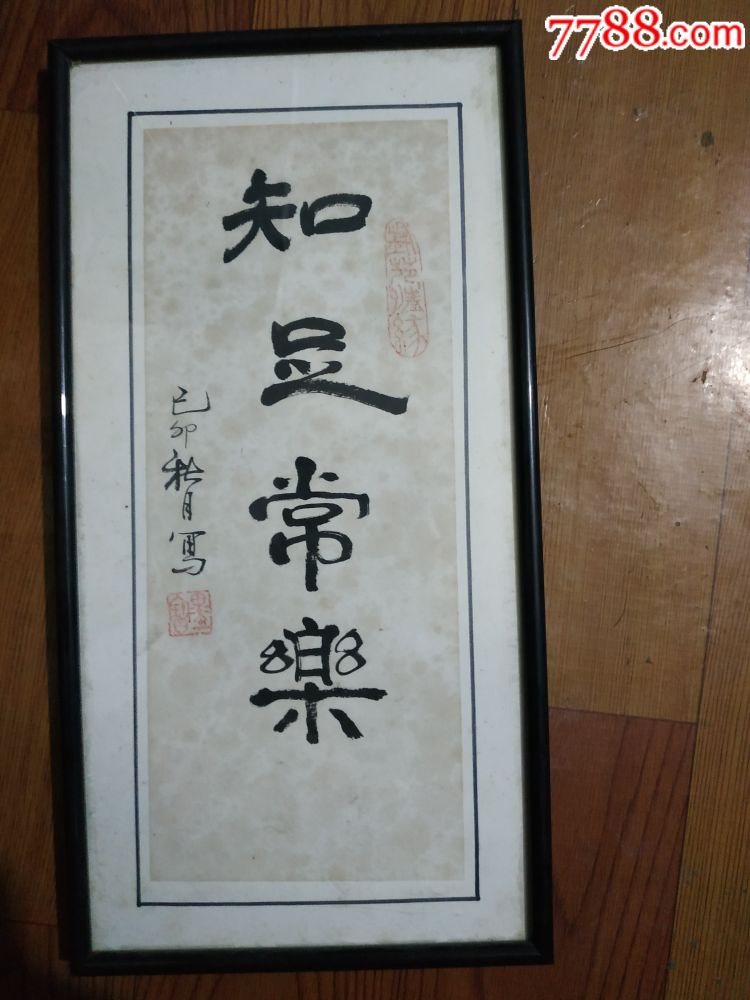 7788.com
知足常樂
己卯秋月寫